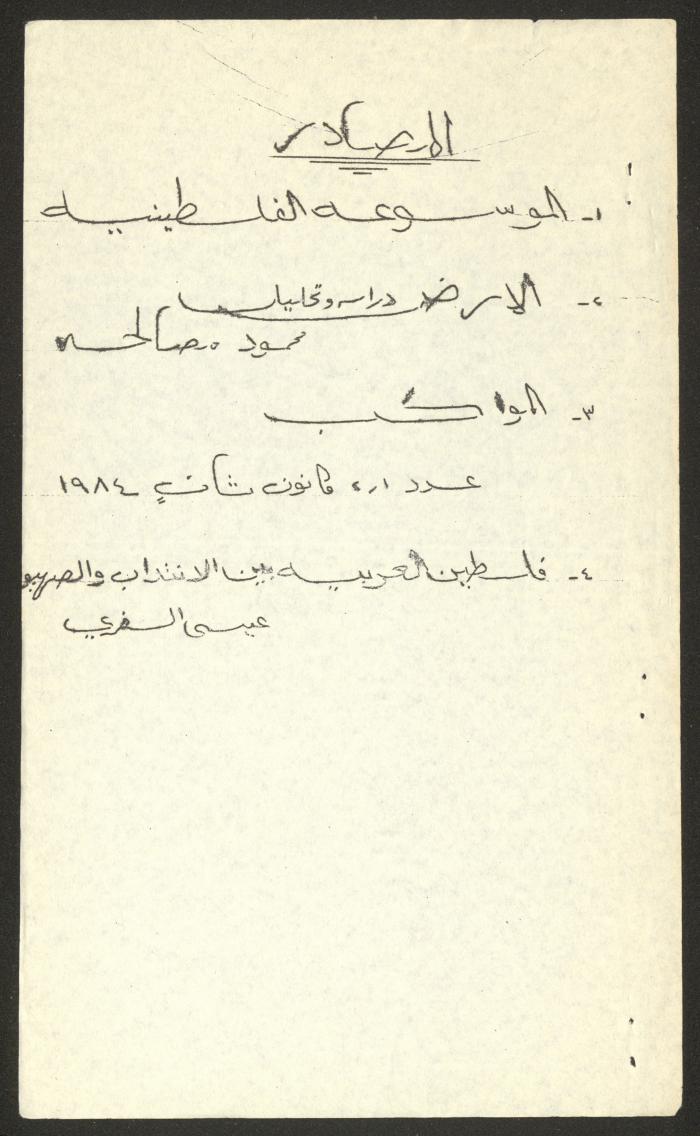 المصادر
١- الموسوعه الفلسطينيه
٢- الارض دراسه وتحليل
محمود مصالحه
٣- المواكب
عدد ١، ٢ كانون ثاني ١٩٨٤
٤- فلسطين العربيه بين الانتداب والصهيو
عيسى السفري